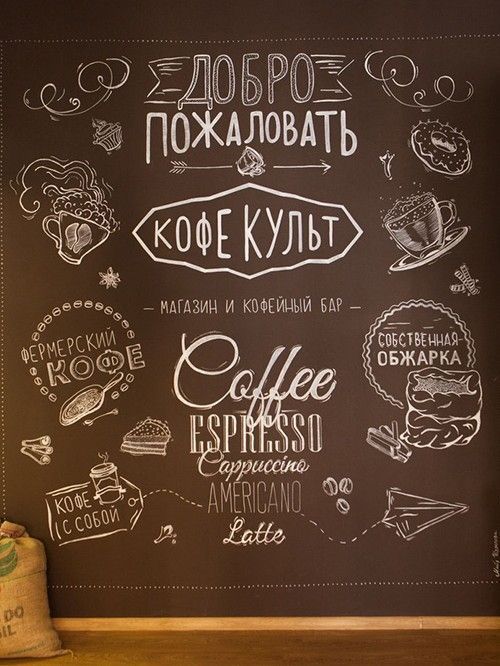 ДОБРО
ПОЖАЛОВАТЬ
КОФЕ КУЛЬТ
— МАГАЗИН И КОФЕЙНЫЙ БАР —
ФЕРМЕРСКИЙ
КОФЕ
СОБСТВЕННАЯ-
ОБЖАРКА
Coffee
ESPRESSO
Cappuccino
AMERICANO
Latte
КОФЕ
С СОБОЙ
DO
IL